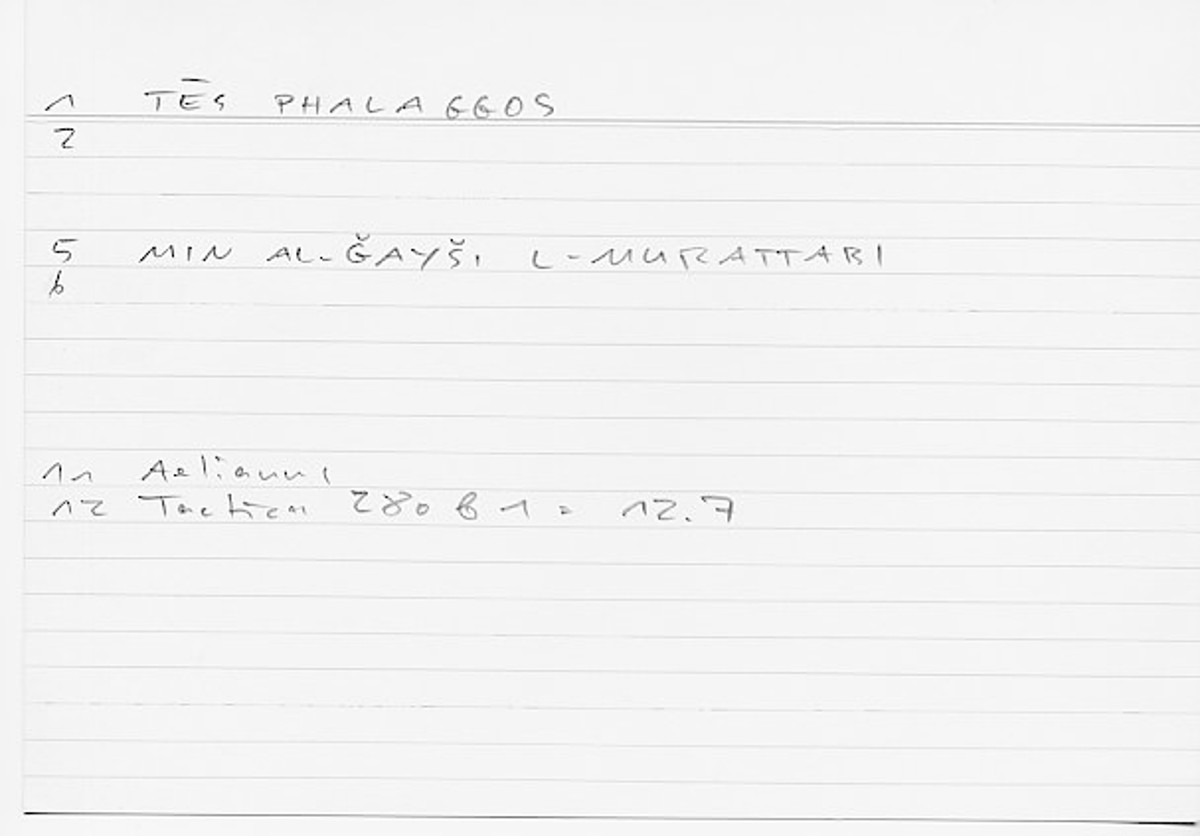 1 TĒS PHALAGGOS
2
5 MIN AL-ǦAYŠI L-MURATTABI
6
11 Aelianus
12 Tactica 280 b 1 = 12.7